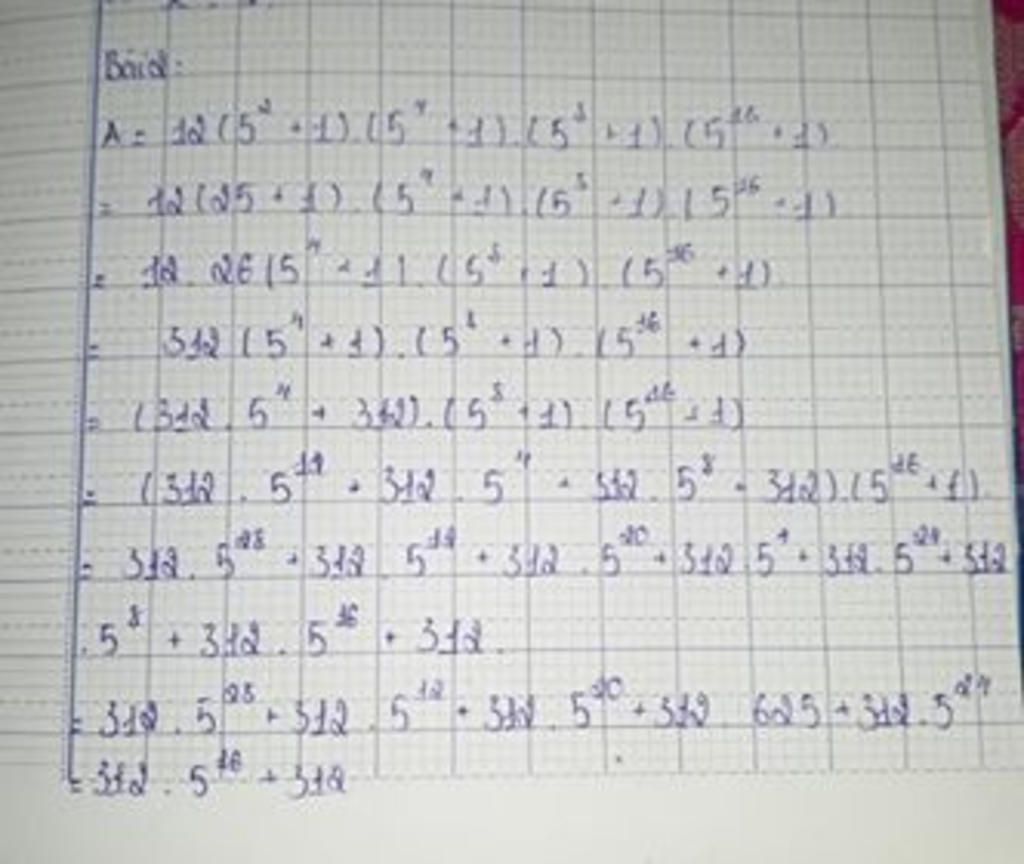 Bài 2:
A = 12(5² + 1).(5⁴ + 1).(5⁸ + 1).(5¹⁶ + 1)
= 12(25 + 1).(5⁴ + 1).(5⁸ + 1)(5¹⁶ + 1)
= 12 . 26(5⁴ + 1).(5⁸ + 1).(5¹⁶ + 1)
= 312(5⁴ + 1).(5⁸ + 1).(5¹⁶ + 1)
= (312 . 5⁴ + 312).(5⁸ + 1).(5¹⁶ + 1)
= (312 . 5¹² + 312 . 5⁴ + 312 . 5⁸ + 312).(5¹⁶ + 1)
= 312 . 5²⁸ + 312 . 5¹² + 312 . 5²⁰ + 312 . 5⁴ + 312 . 5²⁴ + 312
. 5⁸ + 312 . 5¹⁶ + 312.
= 312 . 5²⁸ + 312 . 5¹² + 312 . 5²⁰ + 312 . 625 + 312 . 5²⁴
= 312 . 5¹⁶ + 312